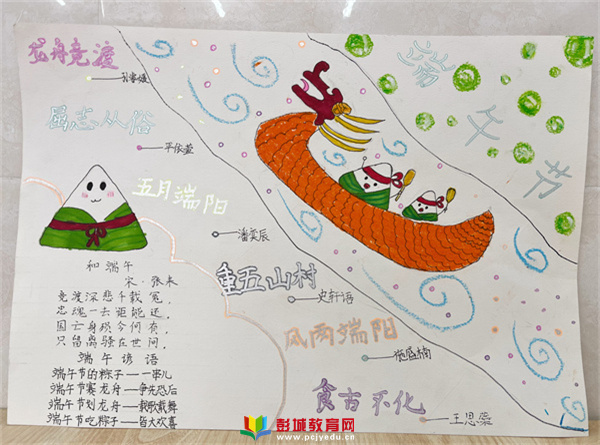 龙舟竞渡
屈志从俗
平依萱
五月端阳
潘奕辰
重五山村
史轩语
风雨端阳
食古不化
王思燊
端午节
和端午
宋·张耒
竞渡深悲千载冤，
忠魂一去讵能还。
国亡身殒今何有，
只留离骚在世间。
端午谚语
端午节的粽子——一串儿
端午节赛龙舟——争先恐后
端午节划龙舟——载歌载舞
端午节吃粽子——皆大欢喜
彭城教育网
www.pcjyedu.cn